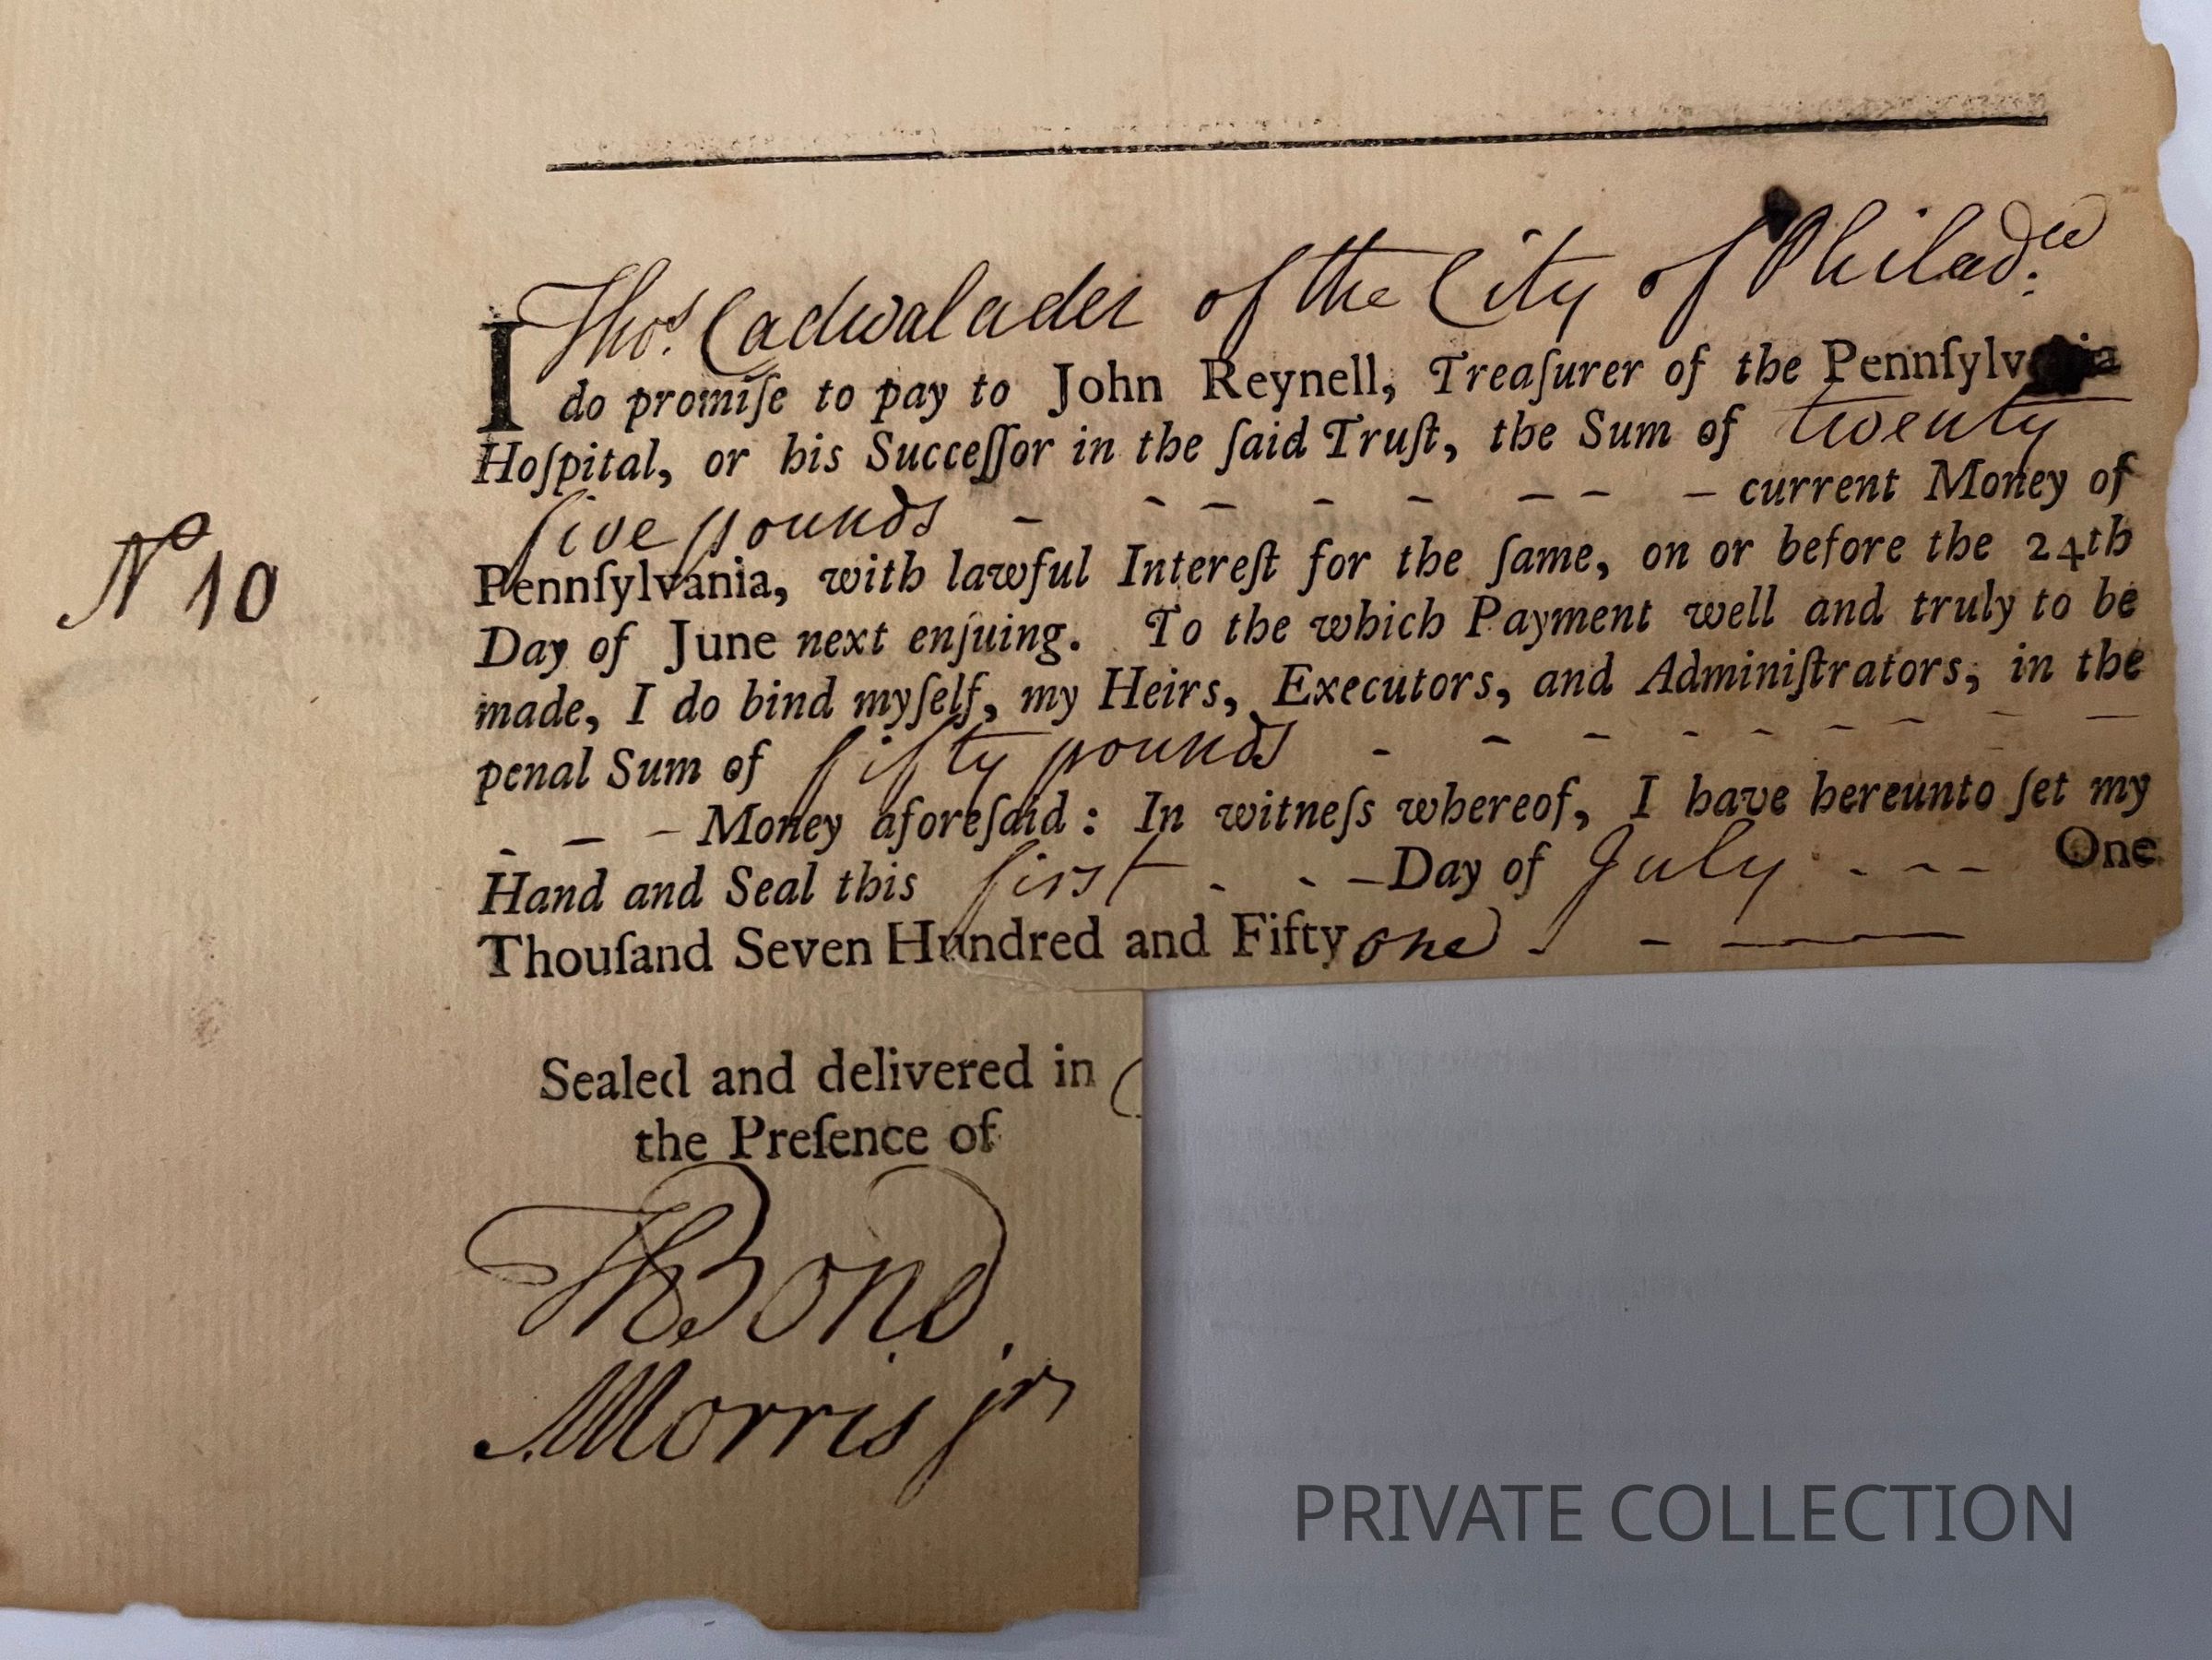 I Thos. Cadwalader of the City of Philad.
do promiſe to pay to John Reynell, Treaſurer of the Pennſylvania
Hoſpital, or his Succeſſor in the ſaid Truſt, the Sum of twenty
five pounds - - - - - - - - current Money of
Pennſylvania, with lawful Intereſt for the ſame, on or before the 24th
Day of June next enſuing. To the which Payment well and truly to be
made, I do bind myſelf, my Heirs, Executors, and Adminiſtrators, in the
penal Sum of fifty pounds - - - - - - - - -
- - - Money aforeſaid: In witneſs whereof, I have hereunto ſet my
Hand and Seal this first - - - Day of July - - - One
Thouſand Seven Hundred and Fifty one - - -
No 10
Sealed and delivered in
the Preſence of
Th Bond.
Morris jr
PRIVATE COLLECTION